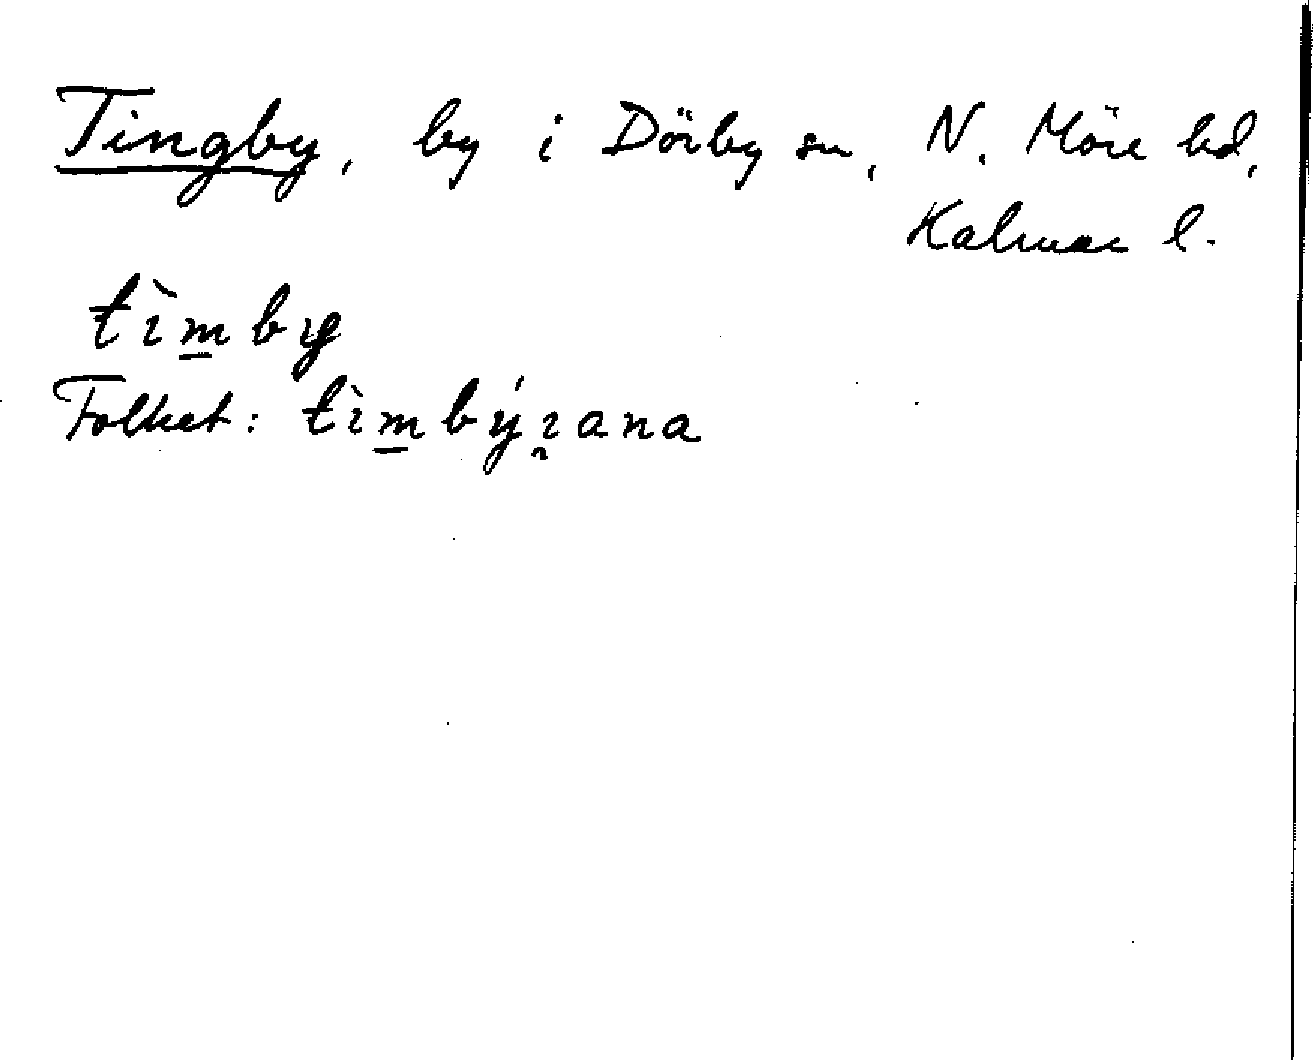 Tingby, by i Dörby sn, N. Möre hd,
Kalmar l.
tìm̱by
Folket: tìm̱býı̰ana